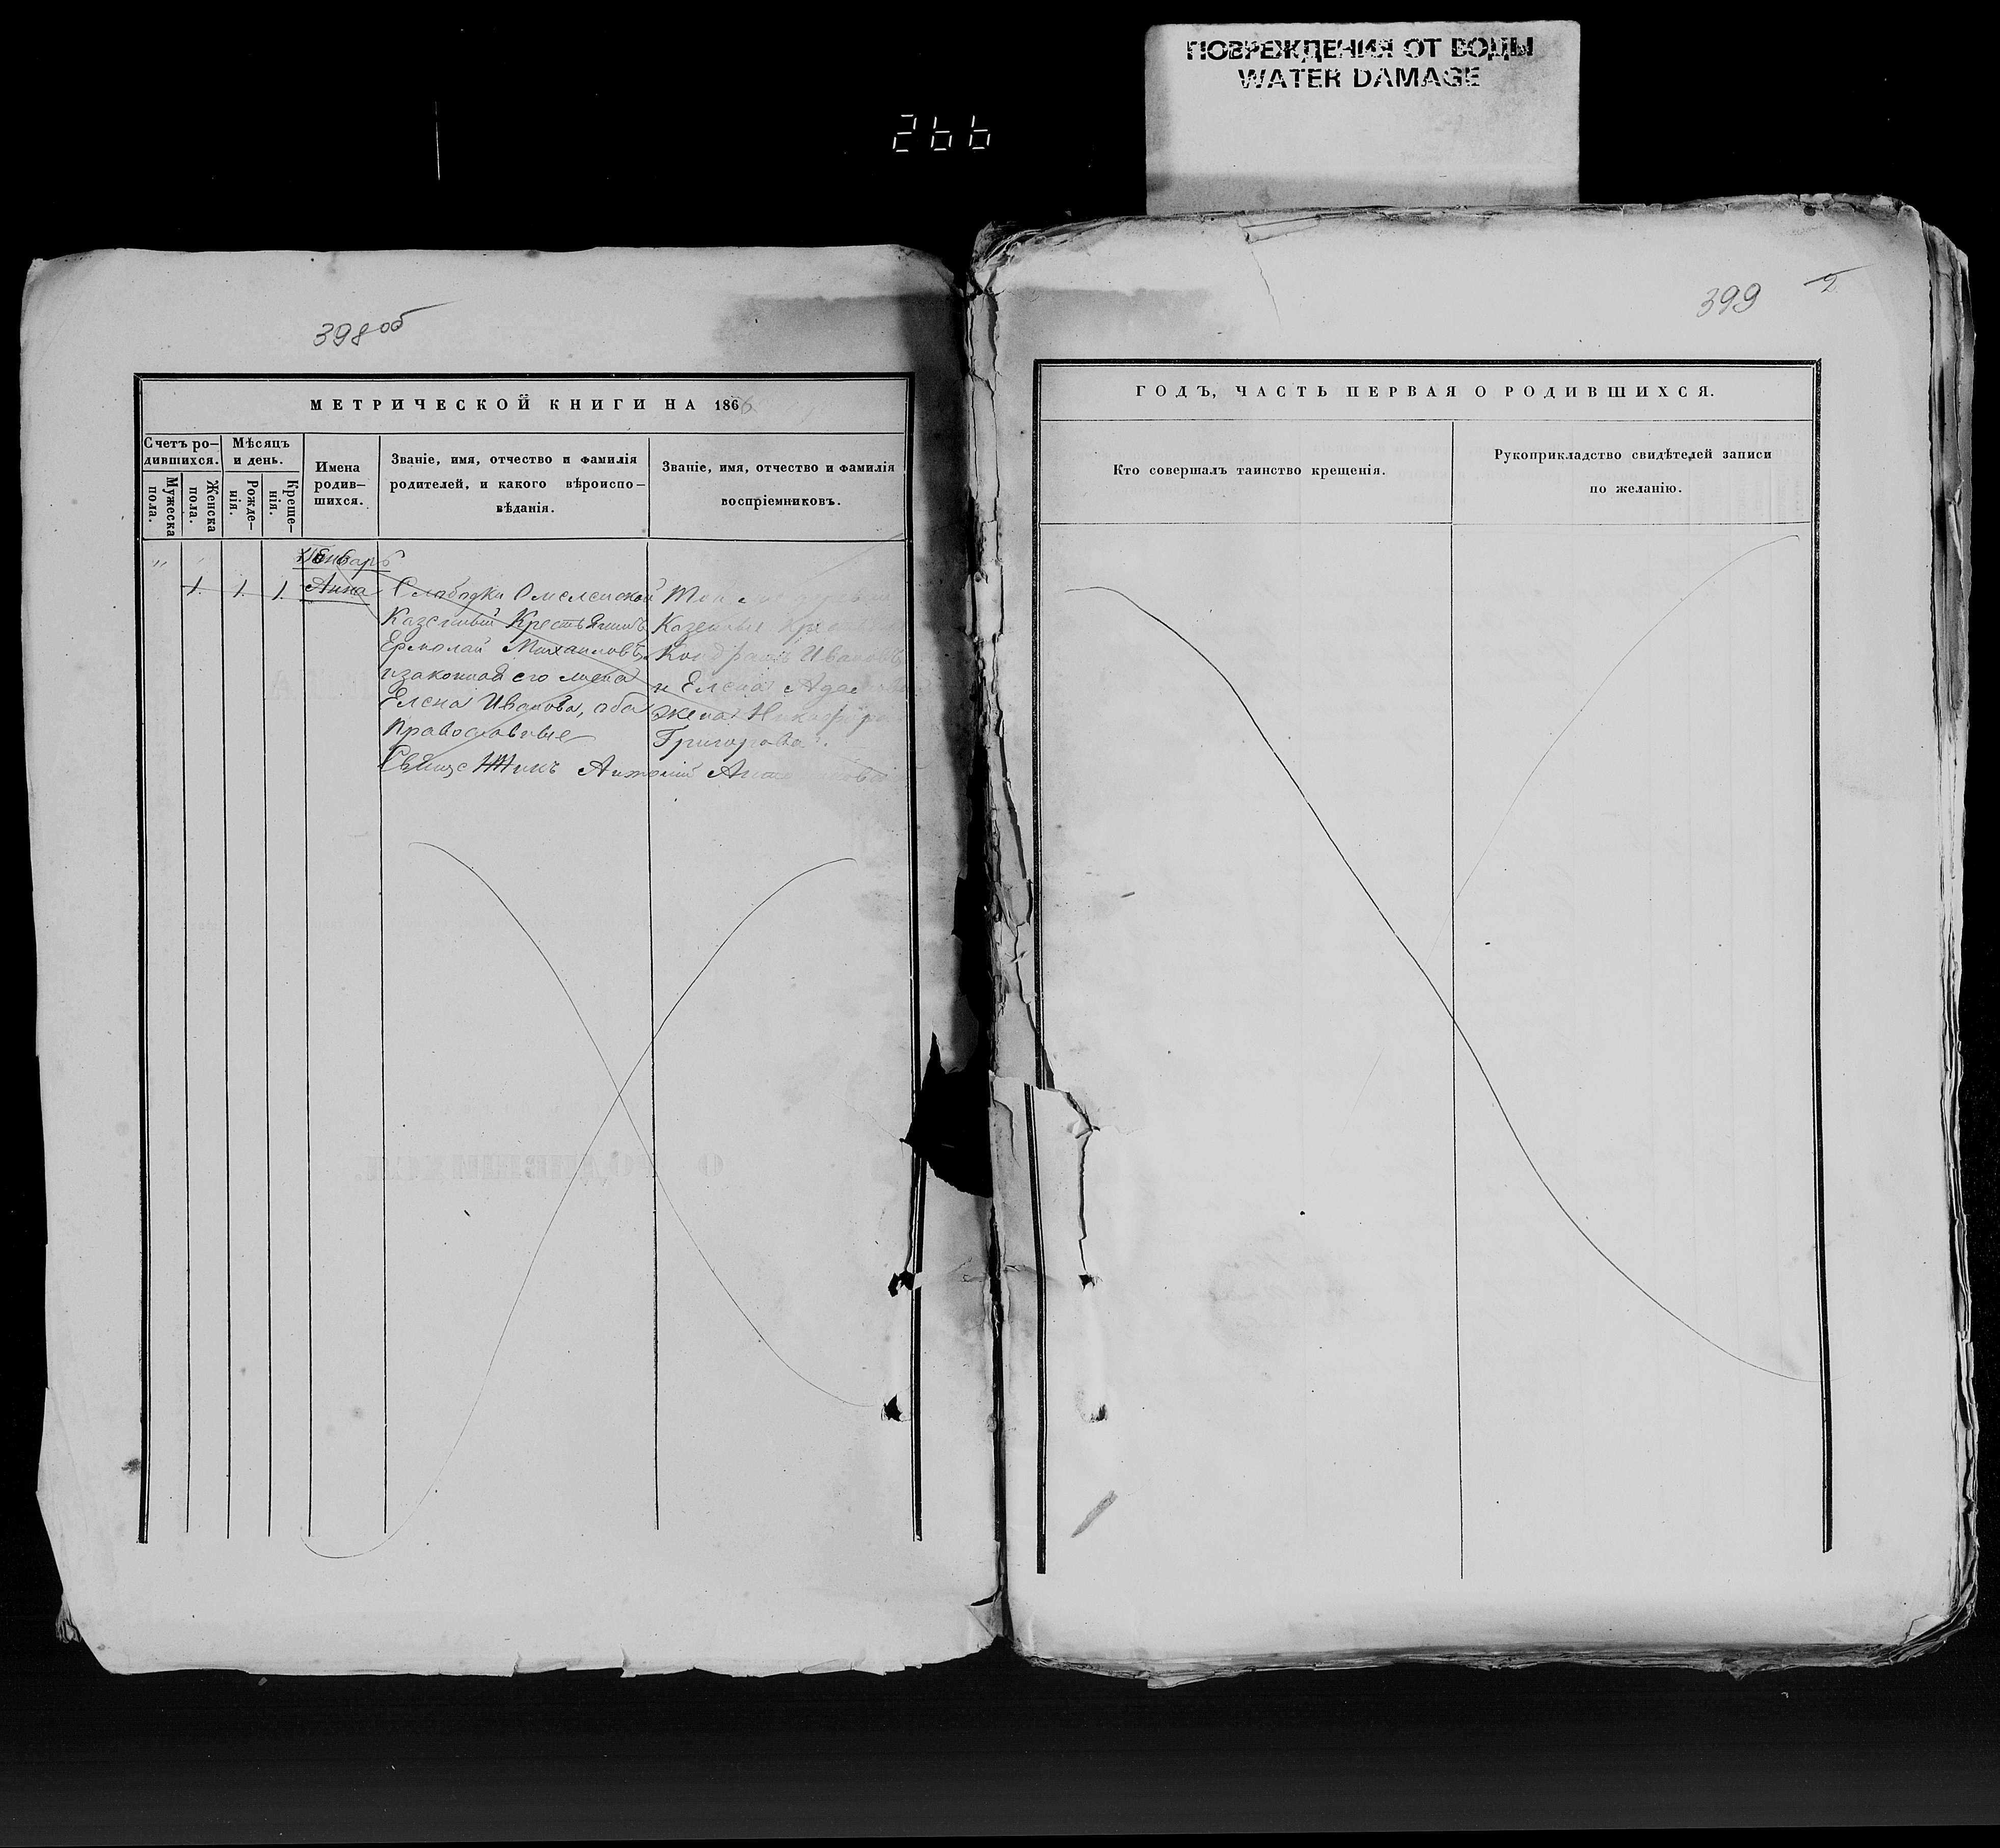 ПОВРЕЖДЕНИЯ ОТ ВОДЫ
WATER DAMAGE
266
398об
МЕТРИЧЕСКОЙ КНИГИ НА 1866
Счетъ ро-
дившихся.
Мужеска
пола.
Женска
пола.
Мѣсяцъ
и день.
Рожде-
нія.
Креще-
нія.
Имена
родив-
шихся.
Званіе, имя, отчество и фамилія
родителей, и какого вѣроиспо-
вѣданія.
Званіе, имя, отчество и фамилія
воспріемниковъ.
Январь
" 1. 1. 1. Анна
Слободки Омеленской
Казенный Крестьянинъ
Ермолай Михаиловъ
и законная его жена
Елена Иванова, оба
Православные
Той же
Казенные
Кондратъ Ивановъ
и Елена
жена
Григорова.
Священникъ Антоній
399
2
ГОДЪ, ЧАСТЬ ПЕРВАЯ О РОДИВШИХСЯ.
Кто совершалъ таинство крещенія.
Рукоприкладство свидѣтелей записи
по желанію.